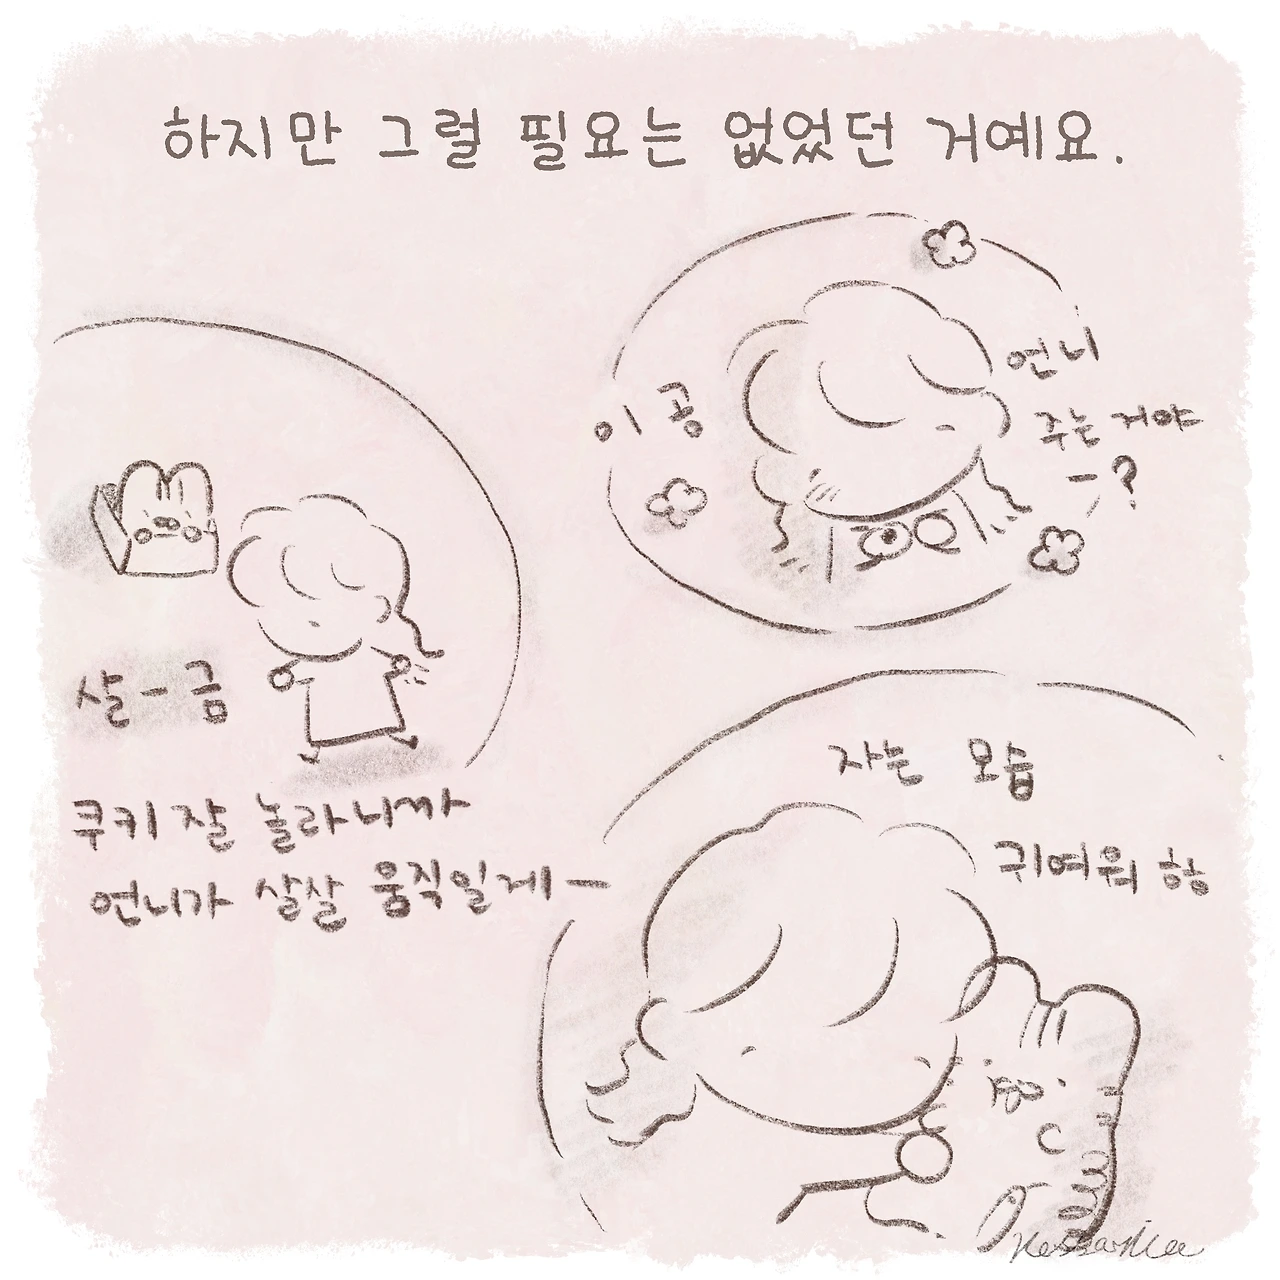 하지만 그럴 필요는 없었던 거예요.
이 공
언니
주는 거야
-?
살-금
쿠키 잘 놀라니까
언니가 살살 움직일게-
자는 모습
귀여워 항